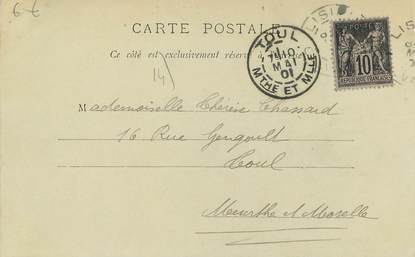 6 €
CARTE POSTALE
Ce côté est exclusivement réservé
14)
TOUL
10
MAI
01
MTHE ET MLLE
LISI
LIS
POSTE
10
REPUBLIQUE FRANÇAISE
Mademoiselle Thérèse Chassard
16 Rue Gengoult
Toul
Meurthe et Moselle